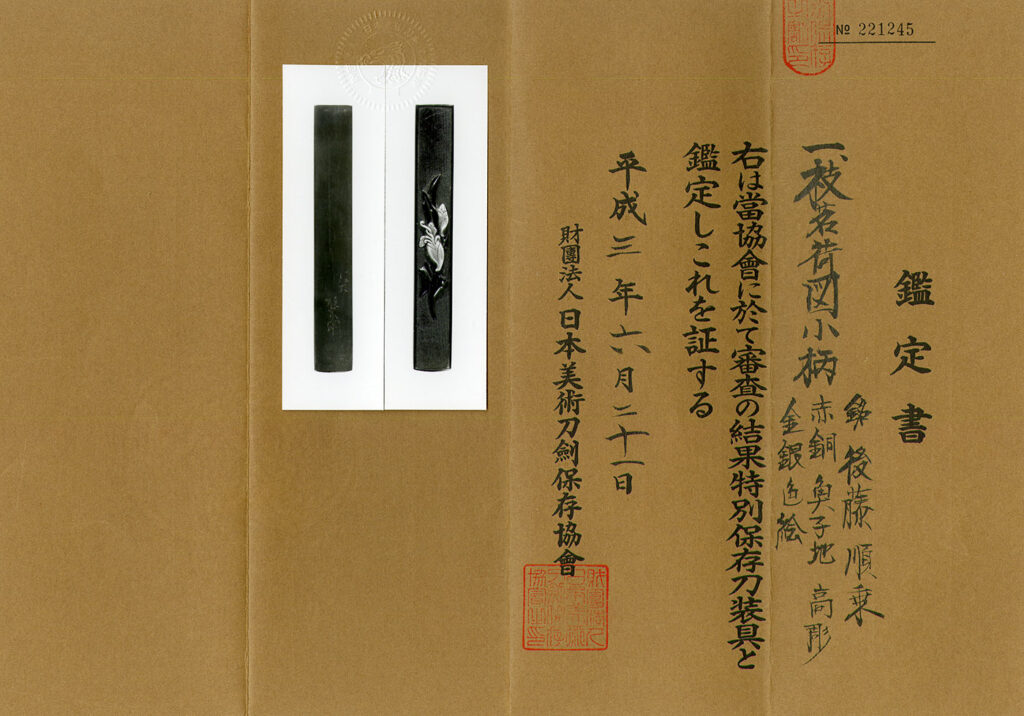 № 221245
鑑定書
一、枝茗荷図小柄
銘 後藤順乗
赤銅魚子地 高彫
金銀色絵
右は當協會に於て審査の結果特別保存刀装具と
鑑定しこれを証する
平成三年六月二十一日
財團法人 日本美術刀劍保存協會